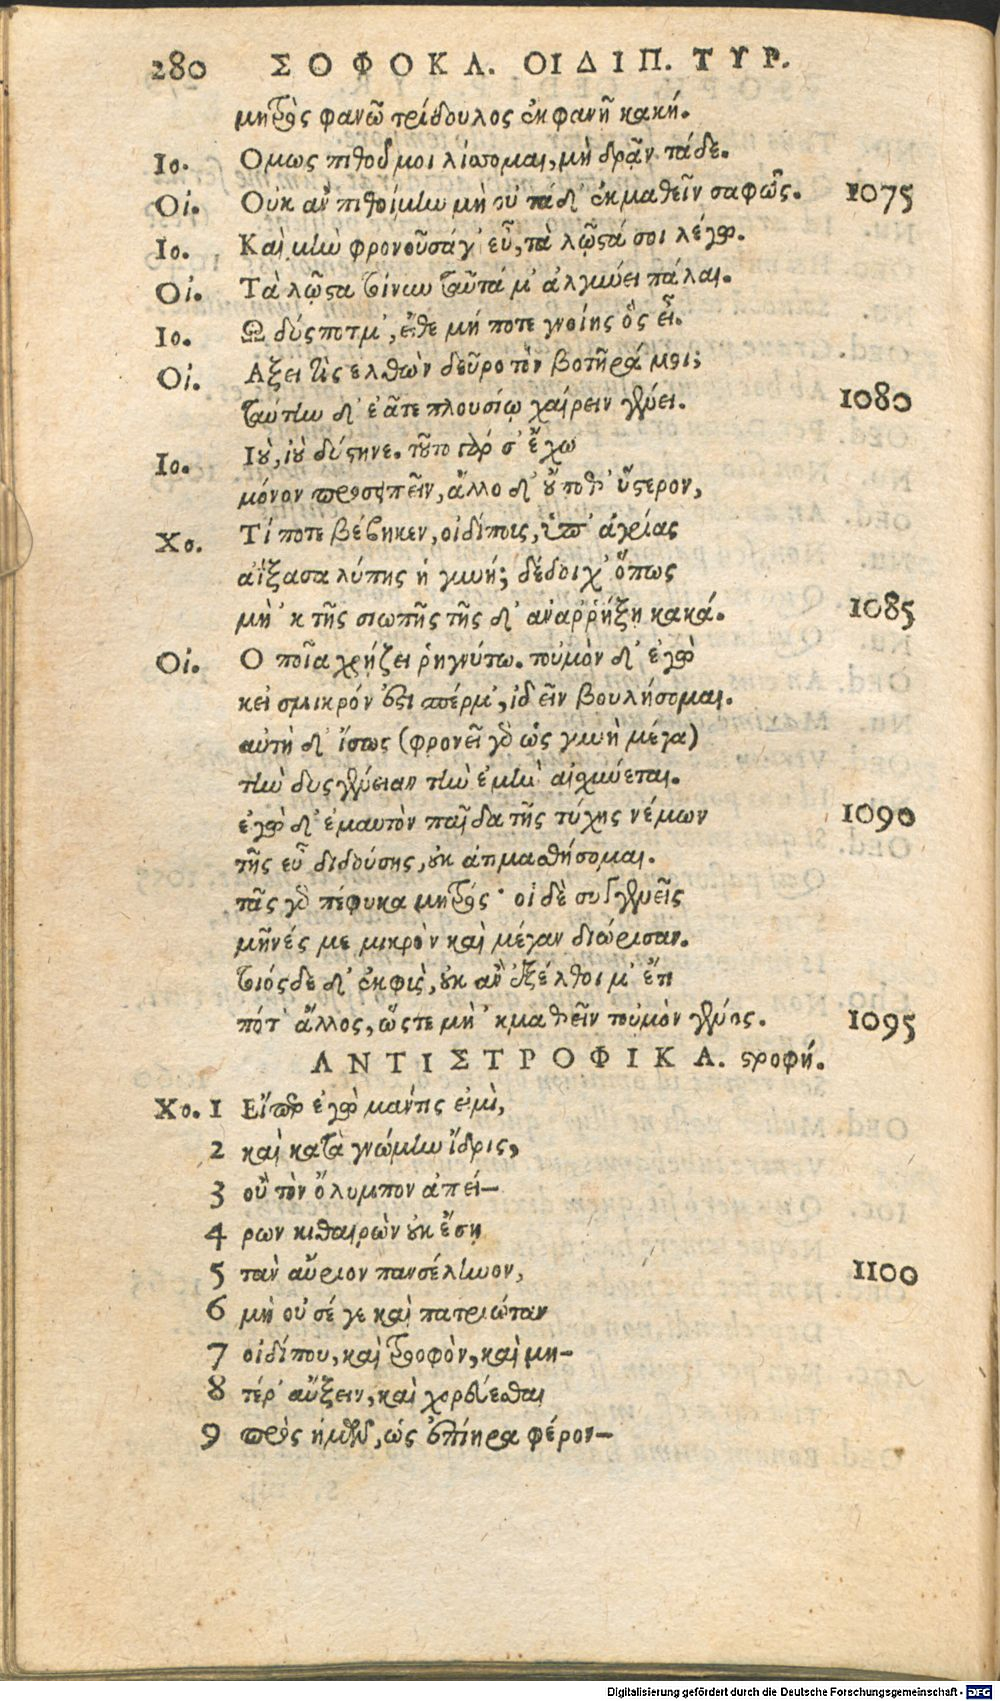 280 ΣΟΦΟΚΛ. ΟΙΔΙΠ. ΤΥΡ.
μητρὸς φανῶ τρίδουλος ἐκφανῆ κακή.
Ιο. Ομως πιθοῦ μοι λίσσομαι, μὴ δρᾶν τάδε.
Οἰ. Οὐκ ἂν πιθοίμην μὴ οὐ τάδ' ἐκμαθεῖν σαφῶς. 1075
Ιο. Καὶ μὴν φρονοῦσά γ' εὖ, τὰ λῷστά σοι λέγω.
Οἰ. Τὰ λῷστα τοίνυν ταῦτά μ' ἀλγύνει πάλαι.
Ιο. Ω δύσποτμ', εἴθε μή ποτε γνοίης ὃς εἶ.
Οἰ. Αξει τὶς ἐλθὼν δεῦρο τὸν βοτῆρά μοι;
ταύτην δ' ἐᾶτε πλουσίῳ χαίρειν γένει. 1080
Ιο. Ιοὺ, ἰοὺ δύστηνε. τοῦτο γάρ σ' ἔχω
μόνον προσειπεῖν, ἄλλο δ' οὔποθ' ὕστερον,
Χο. Τί ποτε βέβηκεν, οἰδίπους, ὑπ' ἀγρίας
αἴξασα λύπης ἡ γυνή; δέδοιχ' ὅπως
μὴ 'κ τῆς σιωπῆς τῆς δ' ἀναῤῥήξῃ κακά. 1085
Οἰ. Ο ποῖα χρῄζει ῥηγνύτω. τοὐμὸν δ' ἐγὼ
κεἰ σμικρόν ἐστι σπέρμ', ἰδεῖν βουλήσομαι.
αὐτὴ δ' ἴσως (φρονεῖ γὸ ὡς γυνὴ μέγα)
τὴν δυσγένειαν τὴν ἐμὴν αἰσχύνεται.
ἐγὼ δ' ἐμαυτὸν παῖδα τῆς τύχης νέμων 1090
τῆς εὖ διδούσης, οὐκ ἀτιμασθήσομαι.
τᾶς γὸ πέφυκα μητρός· οἱ δὲ συγγενεῖς
μῆνές με μικρὸν καὶ μέγαν διώρισαν.
τοιόςδε δ' ἐκφὺς, οὐκ ἂν ἐξέλθοιμ' ἔτι
πότ' ἄλλος, ὥςτε μὴ 'κμαθεῖν τοὐμὸν γένος. 1095
ΑΝΤΙΣΤΡΟΦΙΚΑ. στροφή.
Χο. 1 Εἴπερ ἐγὼ μάντις εἰμὶ,
2 καὶ κατὰ γνώμην ἴδρις,
3 οὐ τὸν ὄλυμπον ἀπεί–
4 ρων κιθαιρὼν οὐκ ἔσῃ
5 τὰν αὔριον πανσέληνον, 1100
6 μὴ οὐ σέ γε καὶ πατριώταν
7 οἰδίπου, καὶ τροφὸν, καὶ μη–
8 τέρ' αὔξειν, καὶ χορεύεσθαι
9 πρὸς ἡμῶν, ὡς ἐπίηρα φέρον–
Digitalisierung gefördert durch die Deutsche Forschungsgemeinschaft - DFG